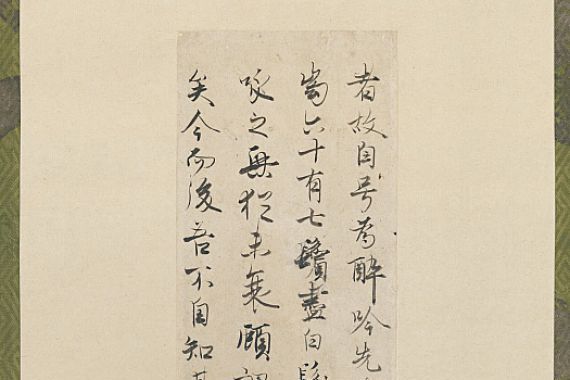 者故自号為酔吟先
歯六十有七鬢盡白髮
咏之興猶未衰顧
矣今而後吾不自知其